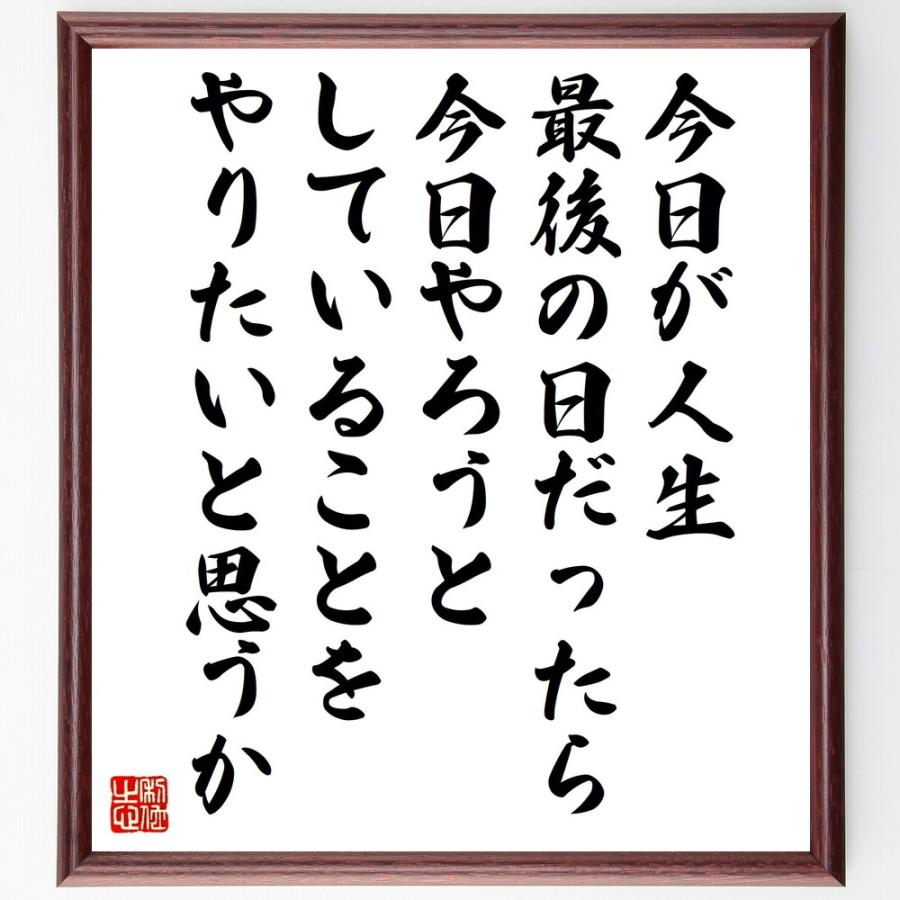 今日が人生
最後の日だったら
今日やろうと
していることを
やりたいと思うか